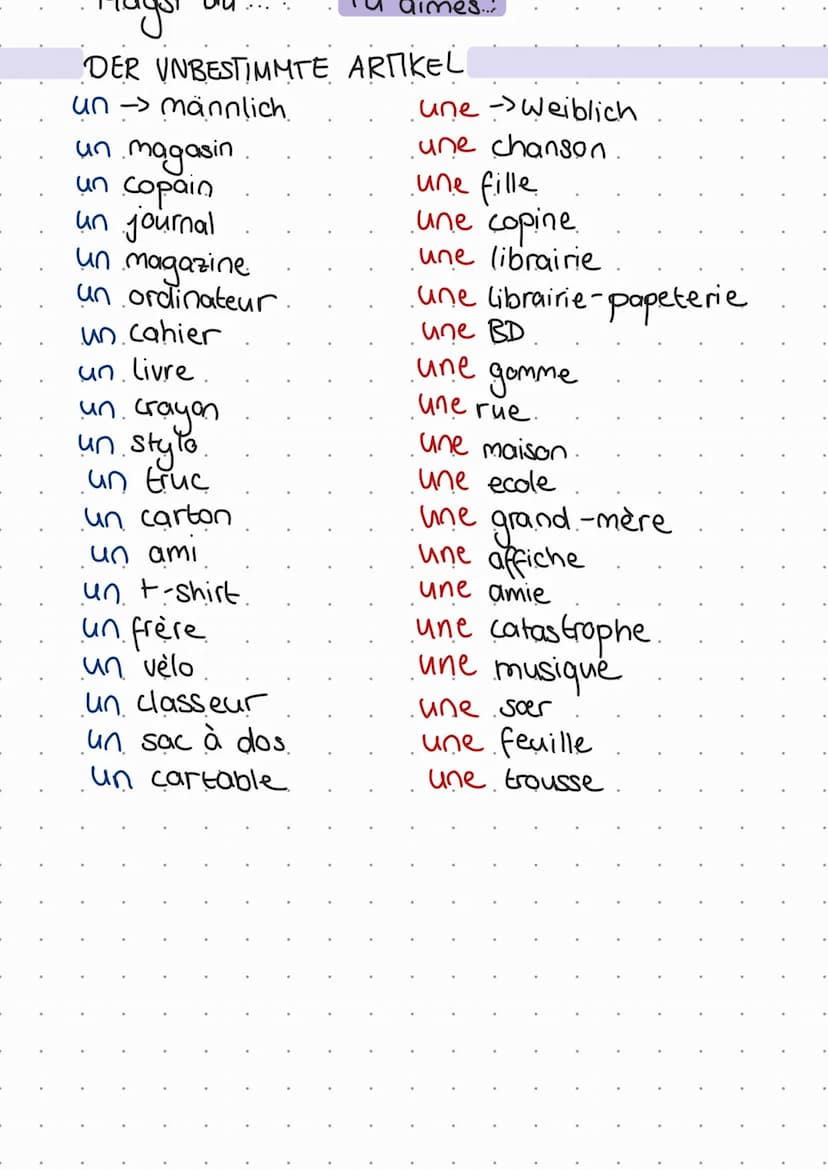 Magst du ....
Tu aimes...
DER UNBESTIMMTE ARTIKEL
un → männlich
un magasin
un copain
un journal
un magazine
un ordinateur
un cahier
un livre
un crayon
un stylo
un truc
un carton
un ami
un t-shirt
un frère
un vèlo
un classeur
un sac à dos
un cartable
une → weiblich
une chanson
une fille
une copine
une librairie
une librairie-papeterie
une BD
une gomme
une rue
une maison
une ecole
une grand-mère
une affiche
une amie
une catastrophe
une musique
une sœr
une feuille
une trousse